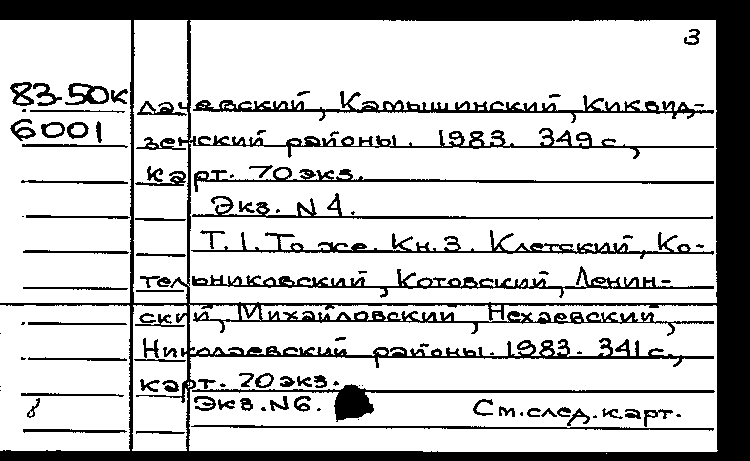 3
83-50к
6001
лачевский, Камышинский, Киквид-
зенский районы. 1983. 349 с.,
карт. 70 экз.
Экз. N 4.
Т. 1. То же. Кн. 3. Клетский, Ко-
тельниковский, Котовский, Ленин-
ский, Михайловский, Нехаевский,
Николаевский районы. 1983. 341 с.,
карт. 70 экз.
Экз. N 6.
См. след. карт.
8